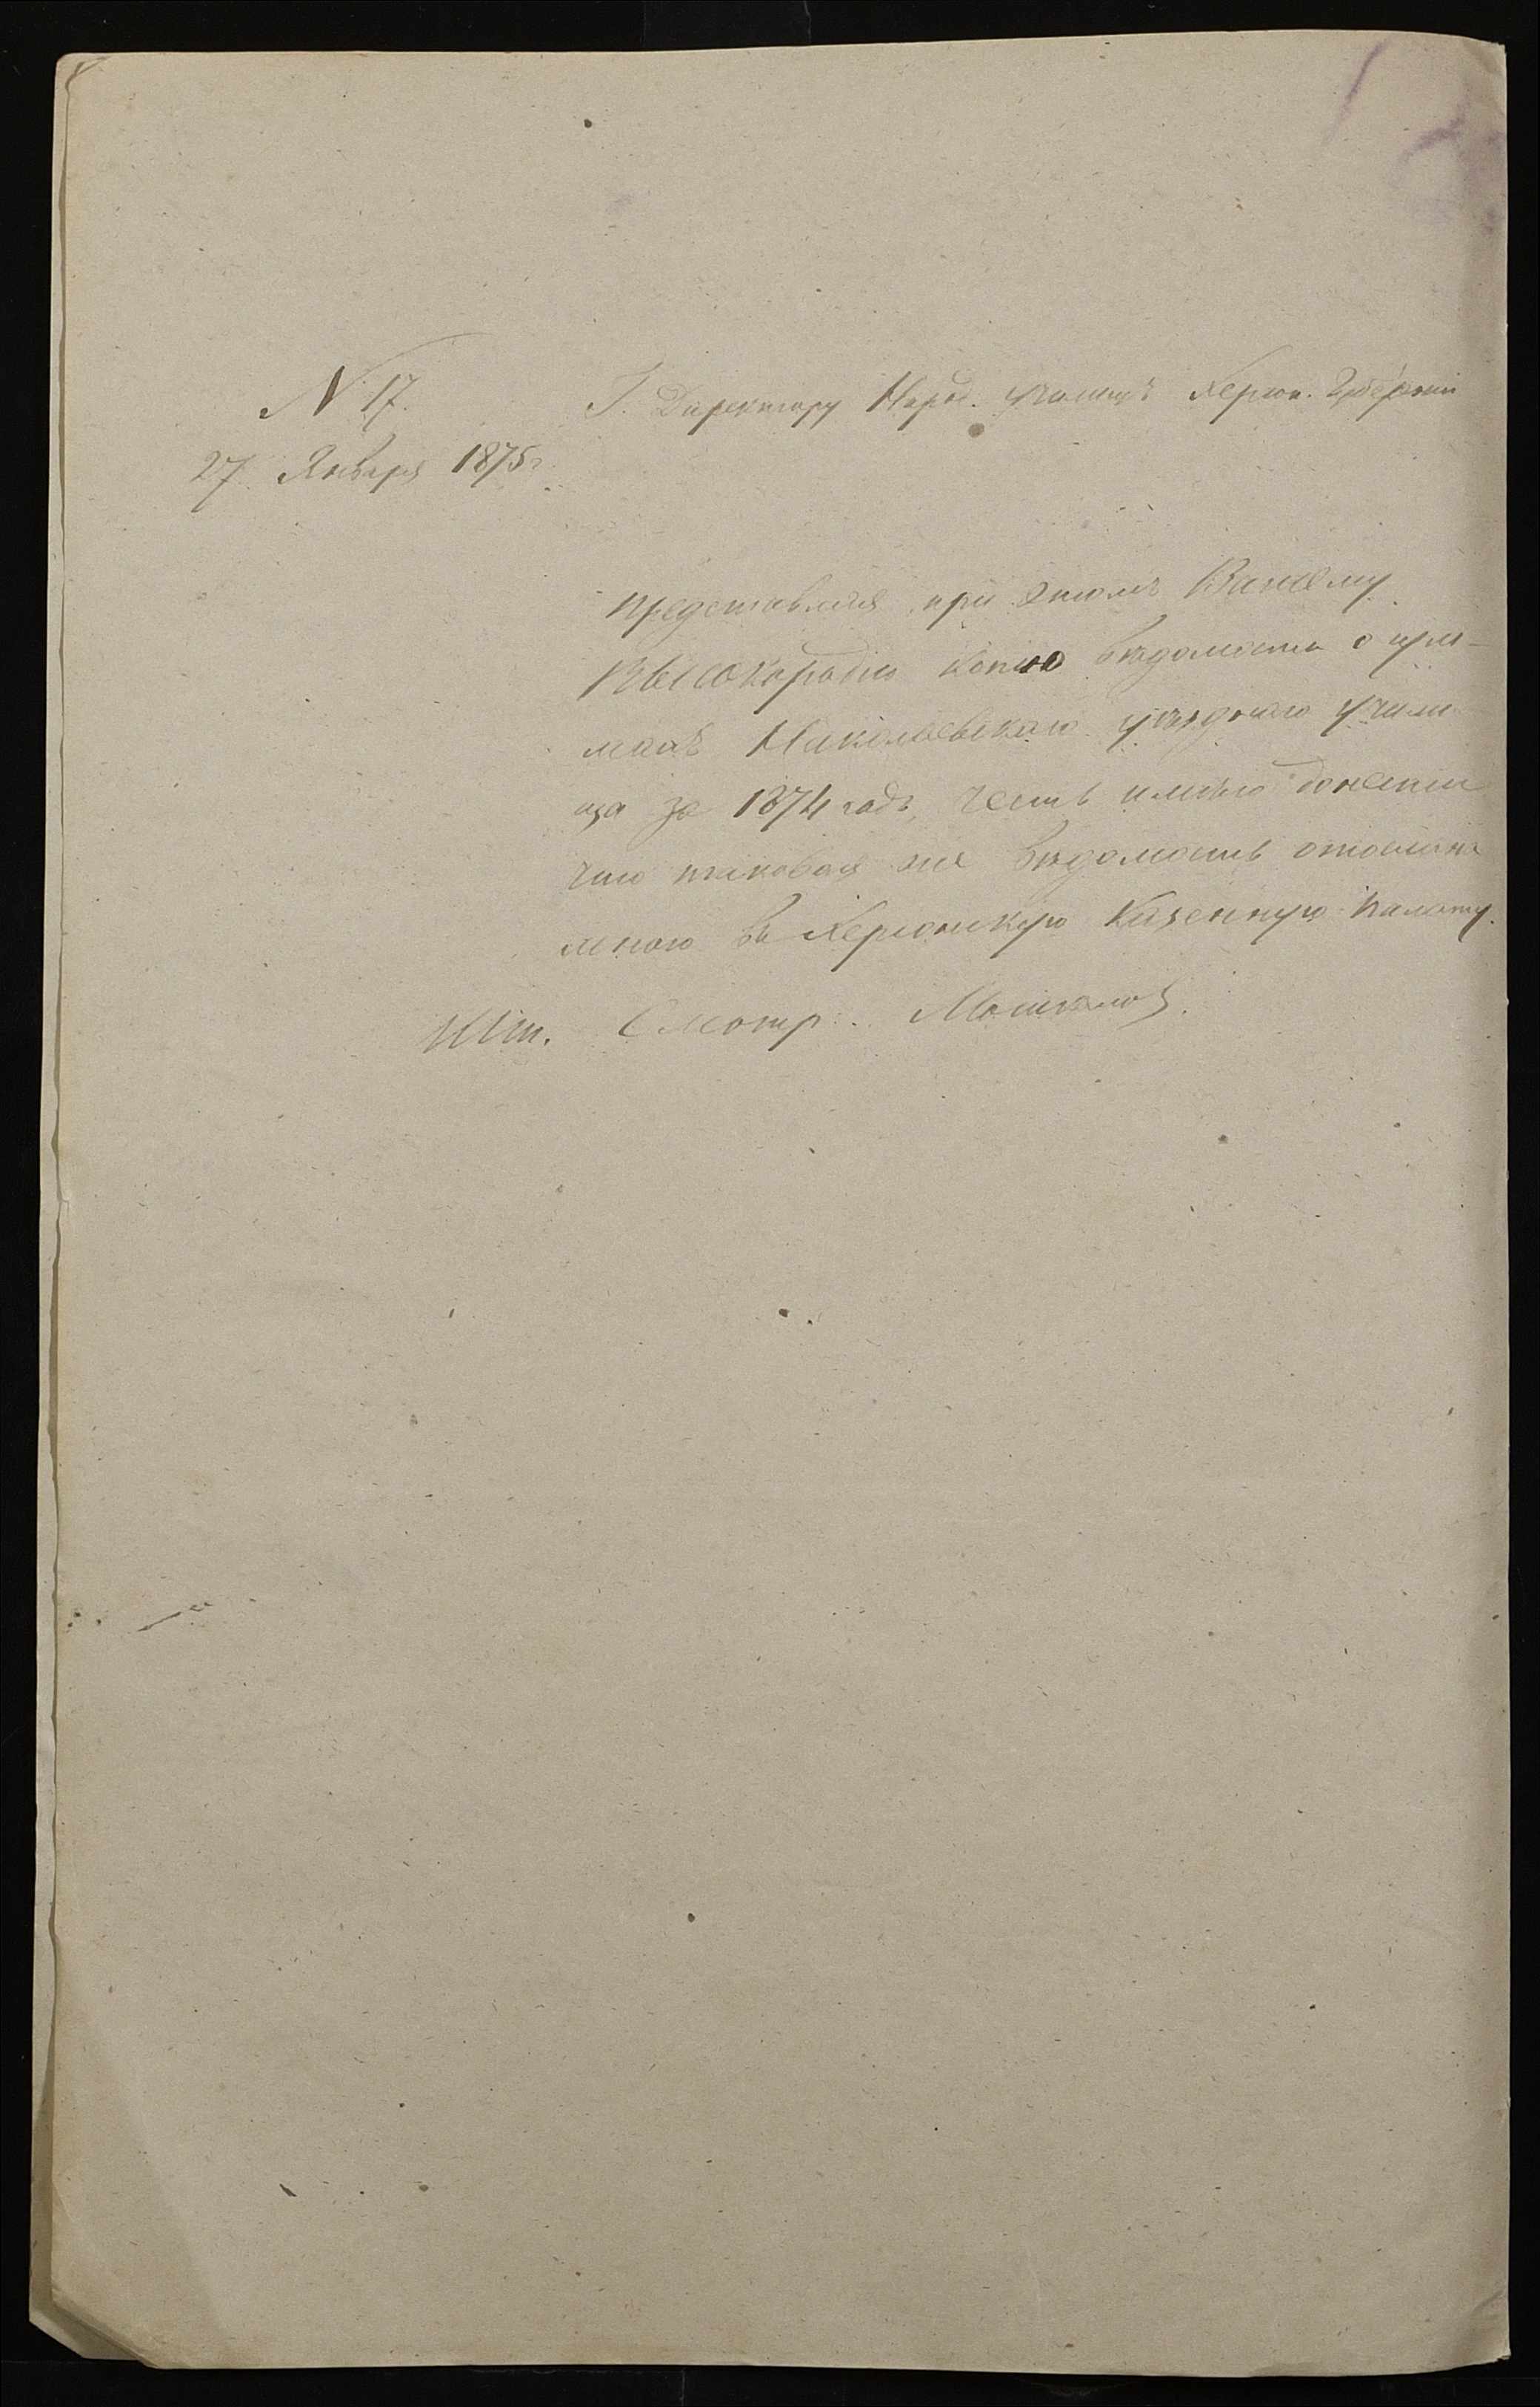 N 17.
27 Января 1875 г.
Г. Директору Народ. училищъ Херсон. Губерніи
Представляя при этомъ Вашему
Высокородію копію вѣдомости о
Николаевскаго уѣзднаго учили-
ща за 1874 годъ, честь имѣю донести
что таковая же вѣдомость отослана
мною въ Херсонскую Казенную Палату.
Шт. Смотр.